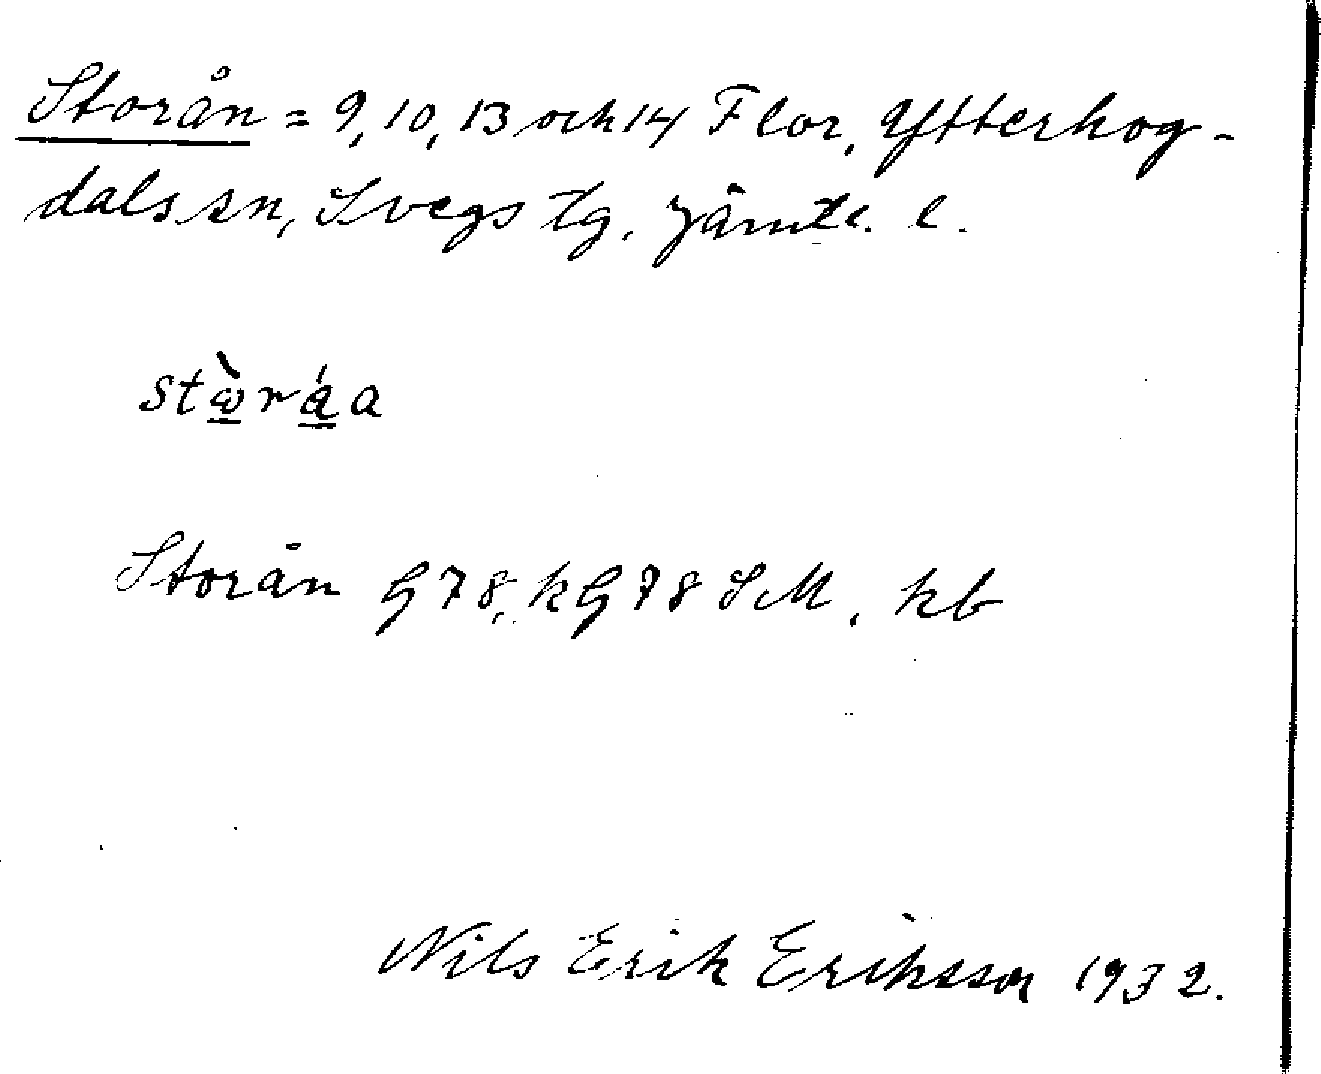 Storån = 9, 10, 13 och 14 Flor, Ytterhog-
dals sn, Svegs tg, Jämtl. l.
stὼ̲rá̲a
Storån G78, kG78 SM, kb
Nils Erik Eriksson 1932.